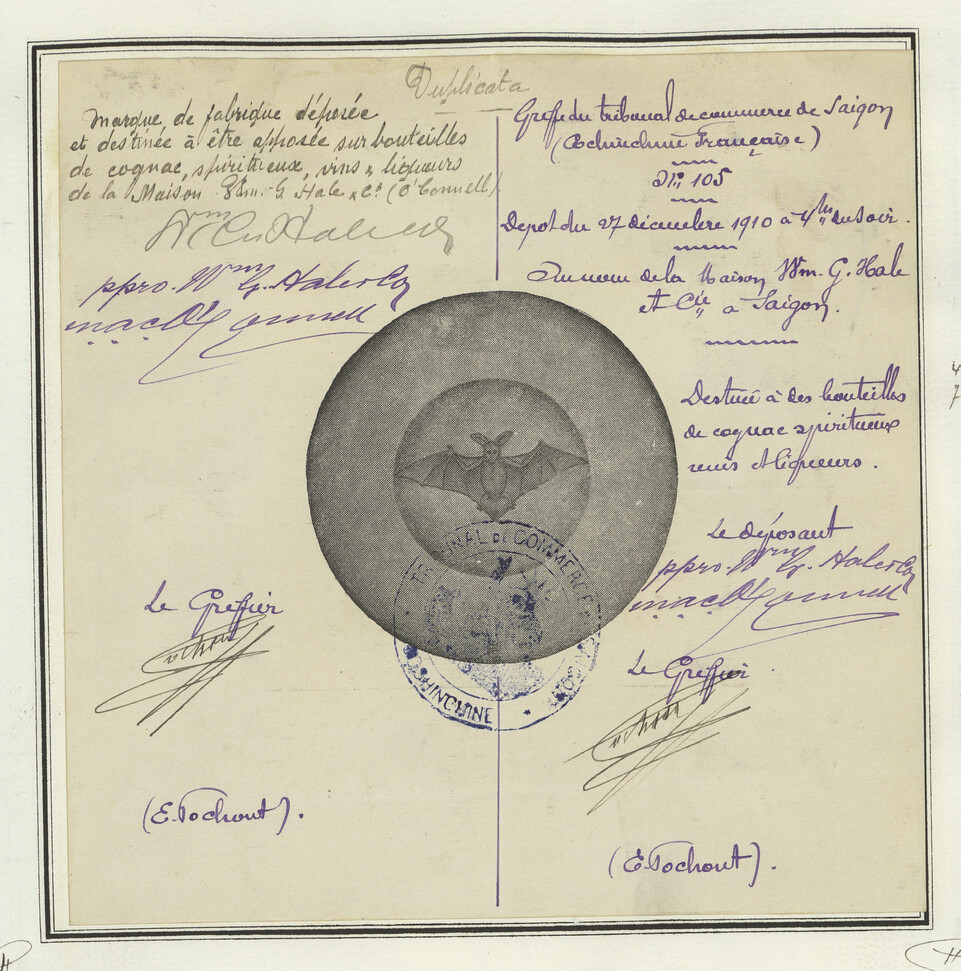 Duplicata
Marque de fabrique déposée
et destinée à être apposée sur bouteilles
de cognac, spiritueux, vins & liqueurs
de la Maison Wm. G. Hale & Co (O'Connell)
ppro. Wm G. Hale & Co
Mac O'Connell
Le Greffier
(E. Pochont).
Greffe du tribunal de commerce de Saigon
(Cochinchine Française)
No 105
Depot du 27 décembre 1910 à 4h du soir.
Au nom de la Maison Wm. G. Hale
et Cie à Saigon.
Destiné à des bouteilles
de cognac spiritueux
vins et liqueurs.
Le déposant
ppro. Wm G. Hale & Co
Mac O'Connell
Le Greffier
(E. Pochont).
TRIBUNAL DE COMMERCE DE SAIGON
COCHINCHINE